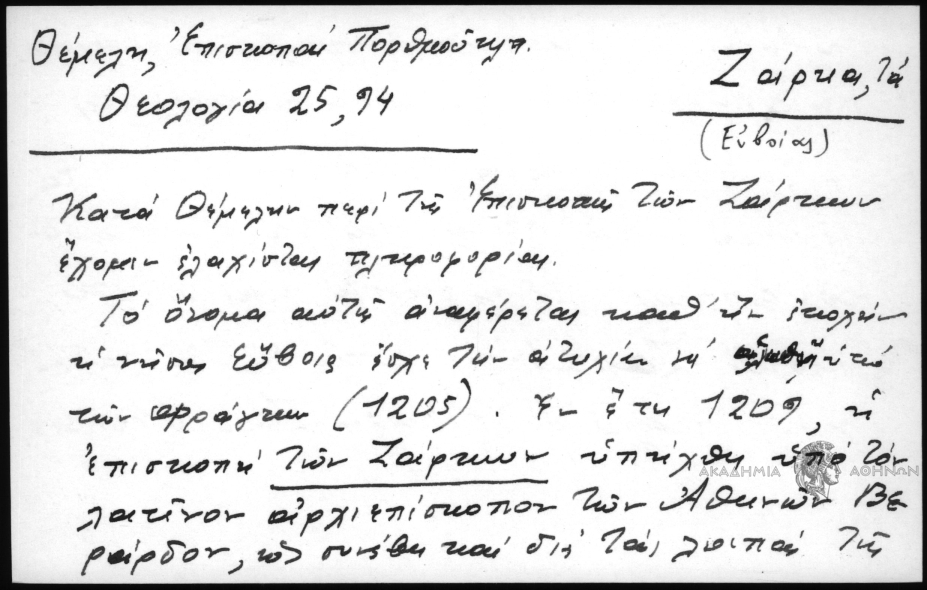 Θέμελη, Ἐπισκοπαί Πορθμοῦ κ.λπ.
Θεολογία 25, 94
Ζάρκα, τά
(Εὐβοίας)
Κατά Θέμελην περί τῆς Ἐπισκοπῆς τῶν Ζάρκων
ἔχομεν ἐλαχίστας πληροφορίας.
Τό ὄνομα αὐτῆς ἀναφέρεται καθ' ἥν ἐποχήν
ἡ νῆσος Εὔβοια ἔσχε τήν ἀτυχίαν νά ὑπό
τῶν Φράγκων (1205). Ἐν ἔτει 1209, ἡ
ἐπισκοπή τῶν Ζάρκων ὑπήχθη ὑπό τόν
λατῖνον ἀρχιεπίσκοπον τῶν Ἀθηνῶν Βε
ράρδον, ὡς συνέβη καί διά τάς λοιπάς τῆς
ΑΚΑΔΗΜΙΑ ΑΘΗΝΩΝ